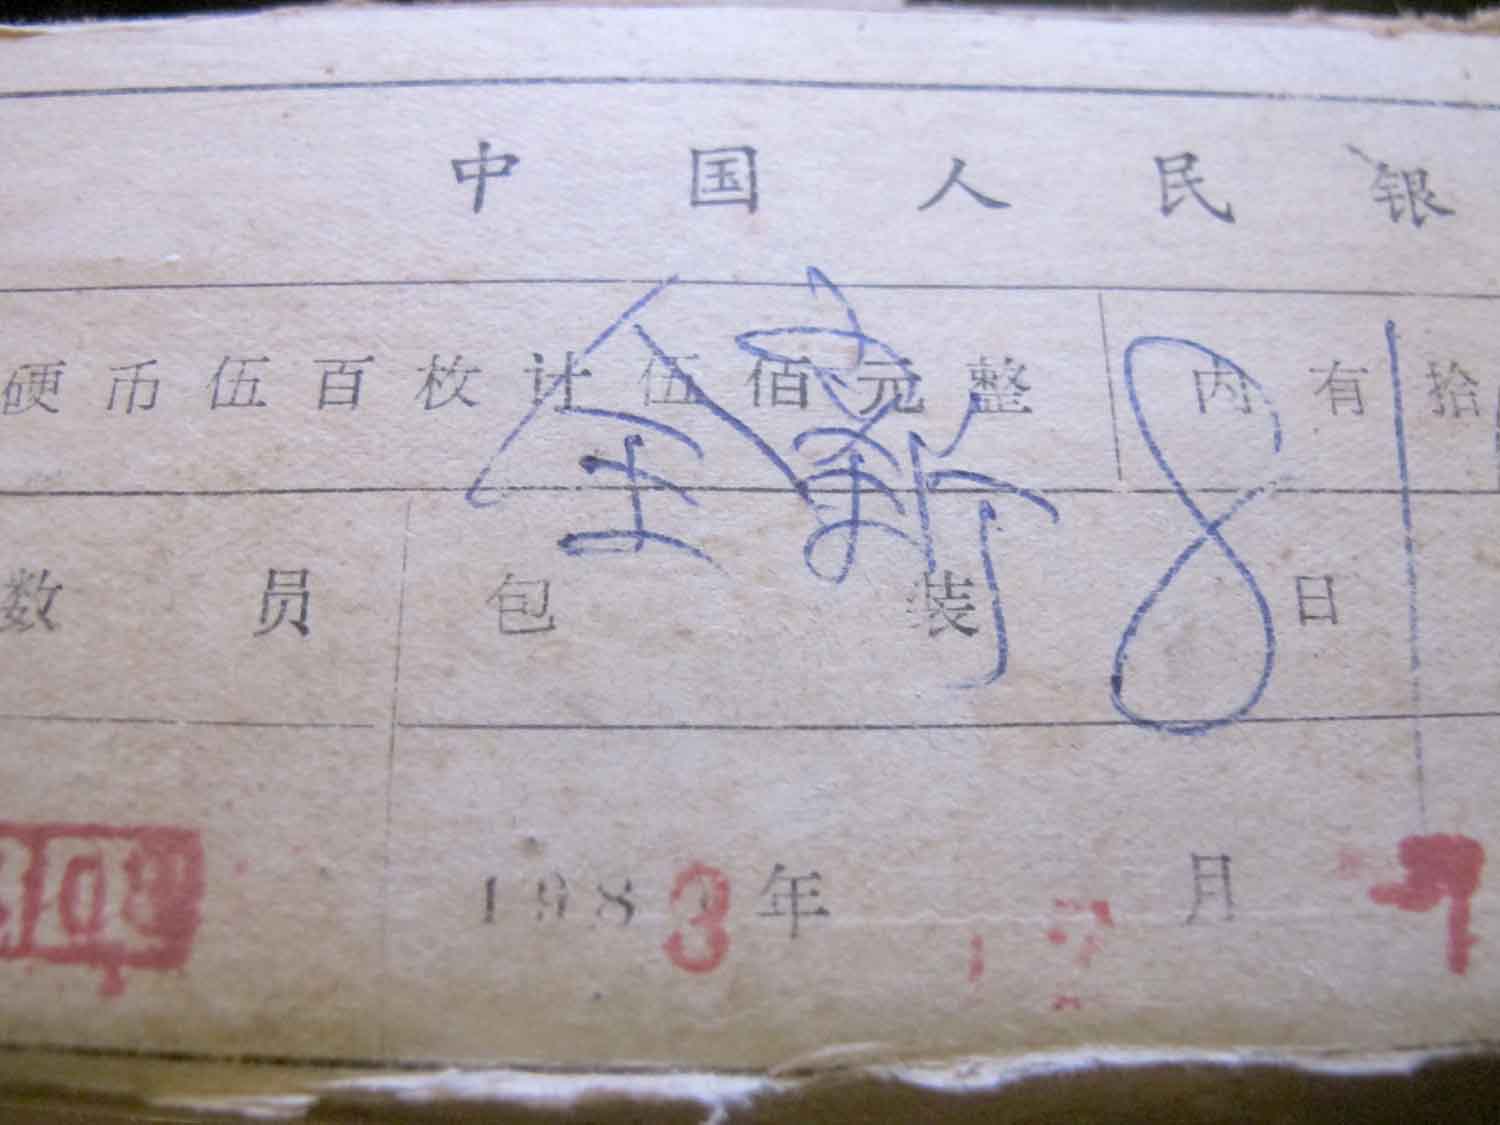 中国人民银
硬币伍百枚计伍佰元整 内有拾
全新 81
数员 包装 日
1983年 12月